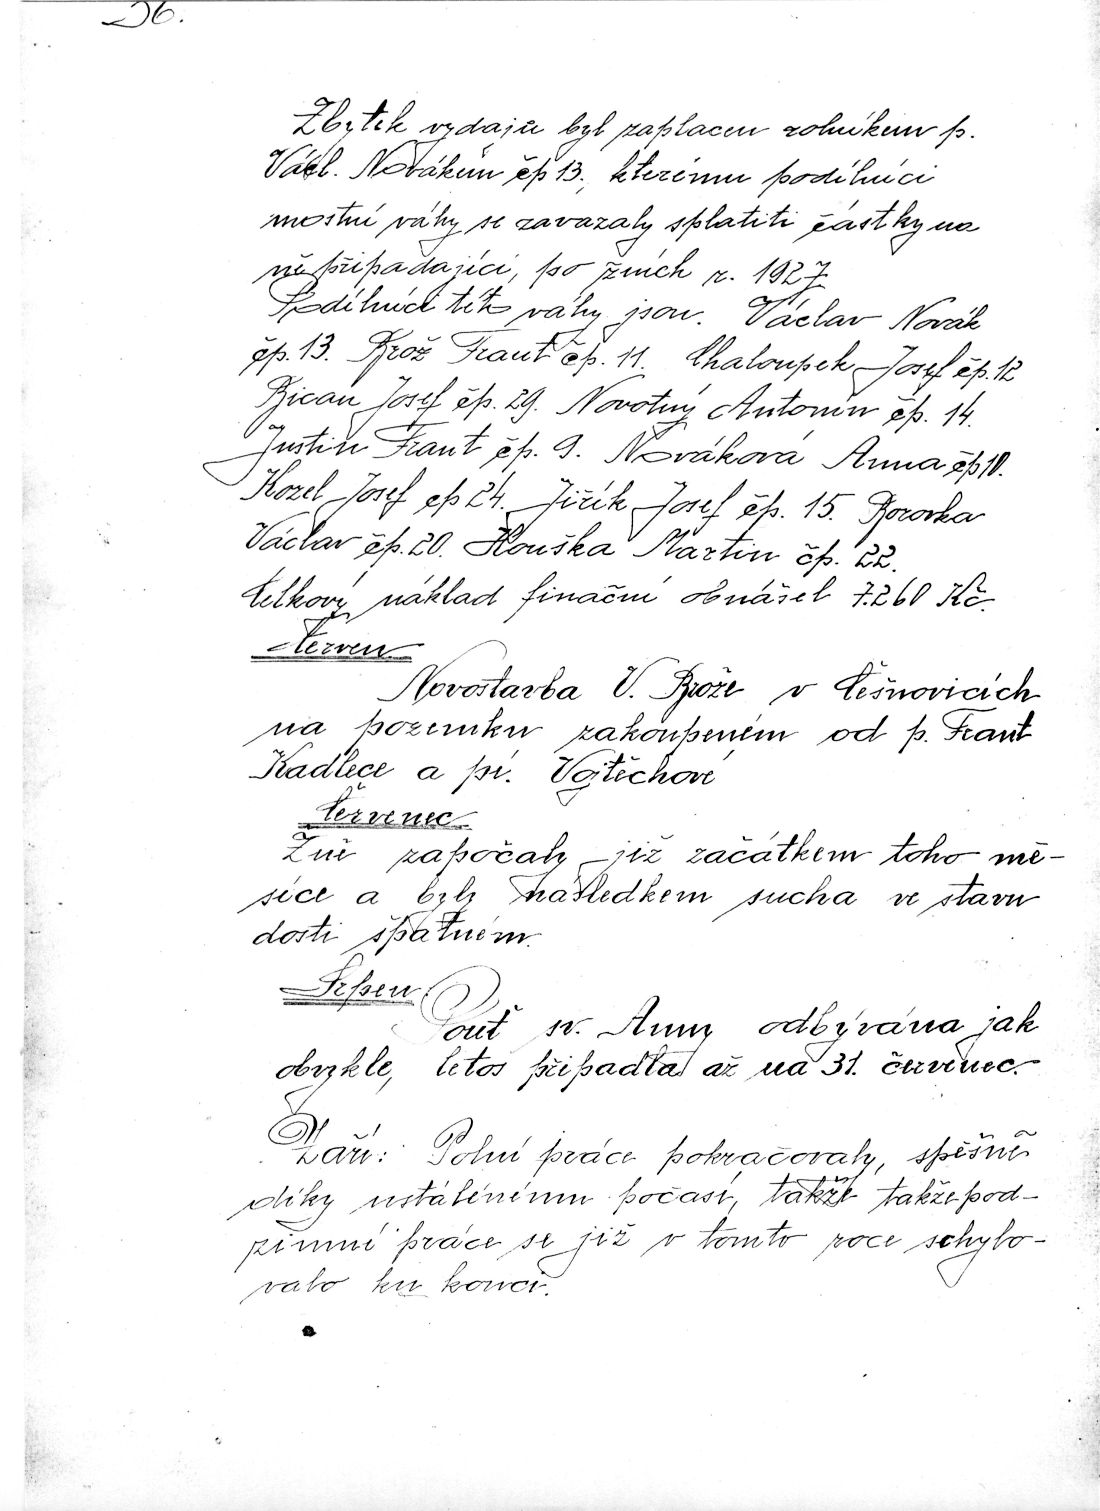 36.
Zbytek vydajů byl zaplacen rolníkem p.
Václ. Novákem čp 13., kterému podílníci
mostní váhy se zavazaly splatiti částky na
ně připadající, po žních r. 1927
Podílníci této váhy jsou. Václav Novák
čp. 13. Brož Frant čp. 11. Chaloupek Josef čp. 12
Bican Josef čp. 29. Novotný Antonín čp. 14.
Justin Frant čp. 9. Nováková Anna čp 10.
Kozel Josef čp 24. Jiřík Josef čp. 15. Borovka
Václav čp. 20. Houška Martin čp. 22.
Celkový náklad finační obnášel 7.260 Kč.
Červen
Novostavba V. Brože v Češnovicích
na pozemku zakoupeném od p. Frant
Kadlece a pí. Vojtěchové
Červenec
Žně započaly již začátkem toho mě-
síce a byly následkem sucha ve stavu
dosti špatném.
Srpen
Pouť sv. Anny odbývána jak
obvykle, letos připadla až na 31. červenec.
Září: Polní práce pokračovaly, spěšně
díky ustálénému počasí, takže takže pod-
zimní práce se již v tomto roce schylo-
valo ku konci.